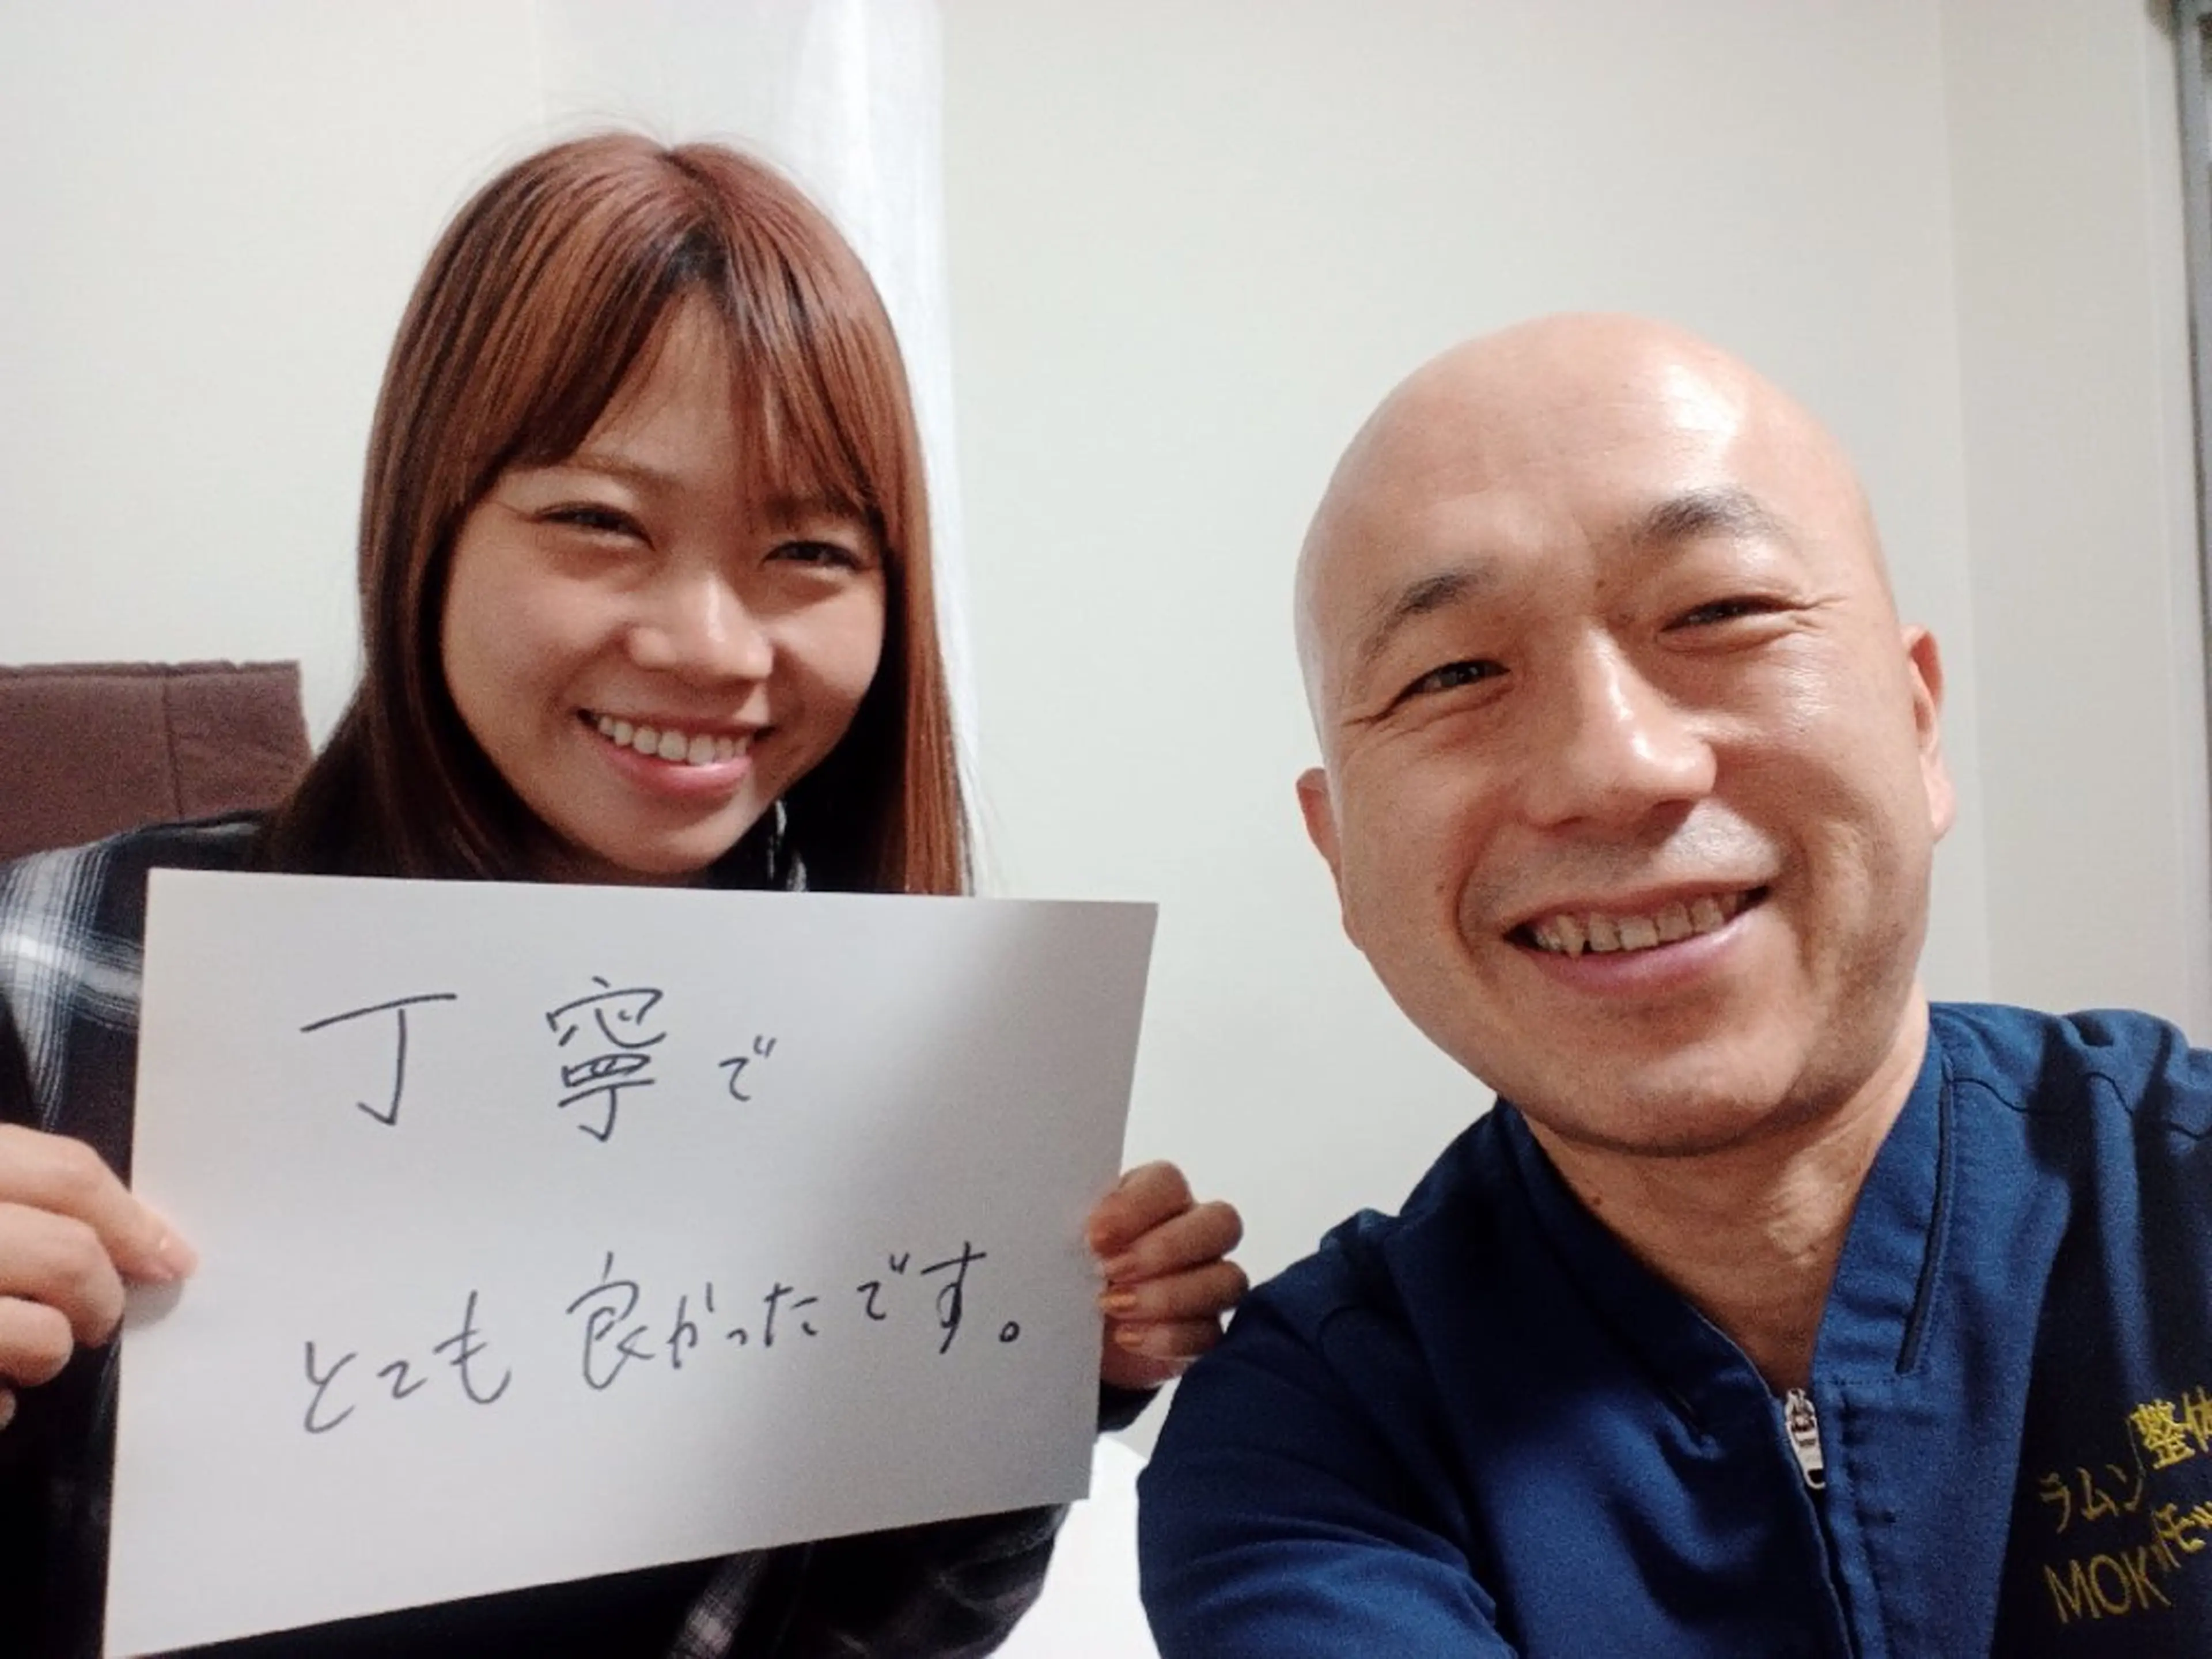 丁寧で
とても良かったです。
整体
ラムン
MOK